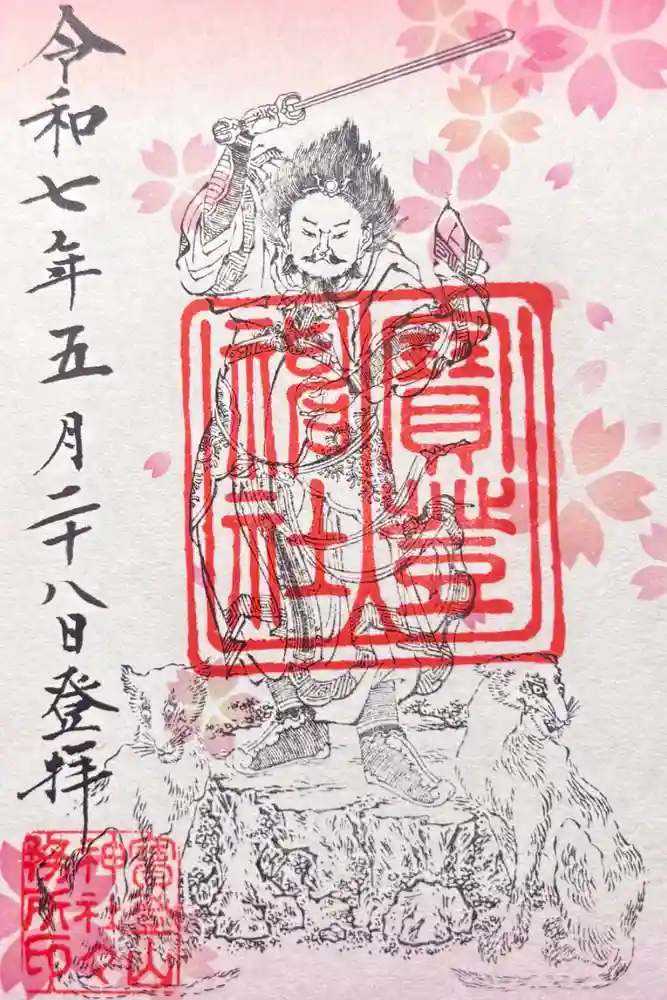 令和七年五月二十八日登拝
寳登
神社
寳登山
神社々
務所印